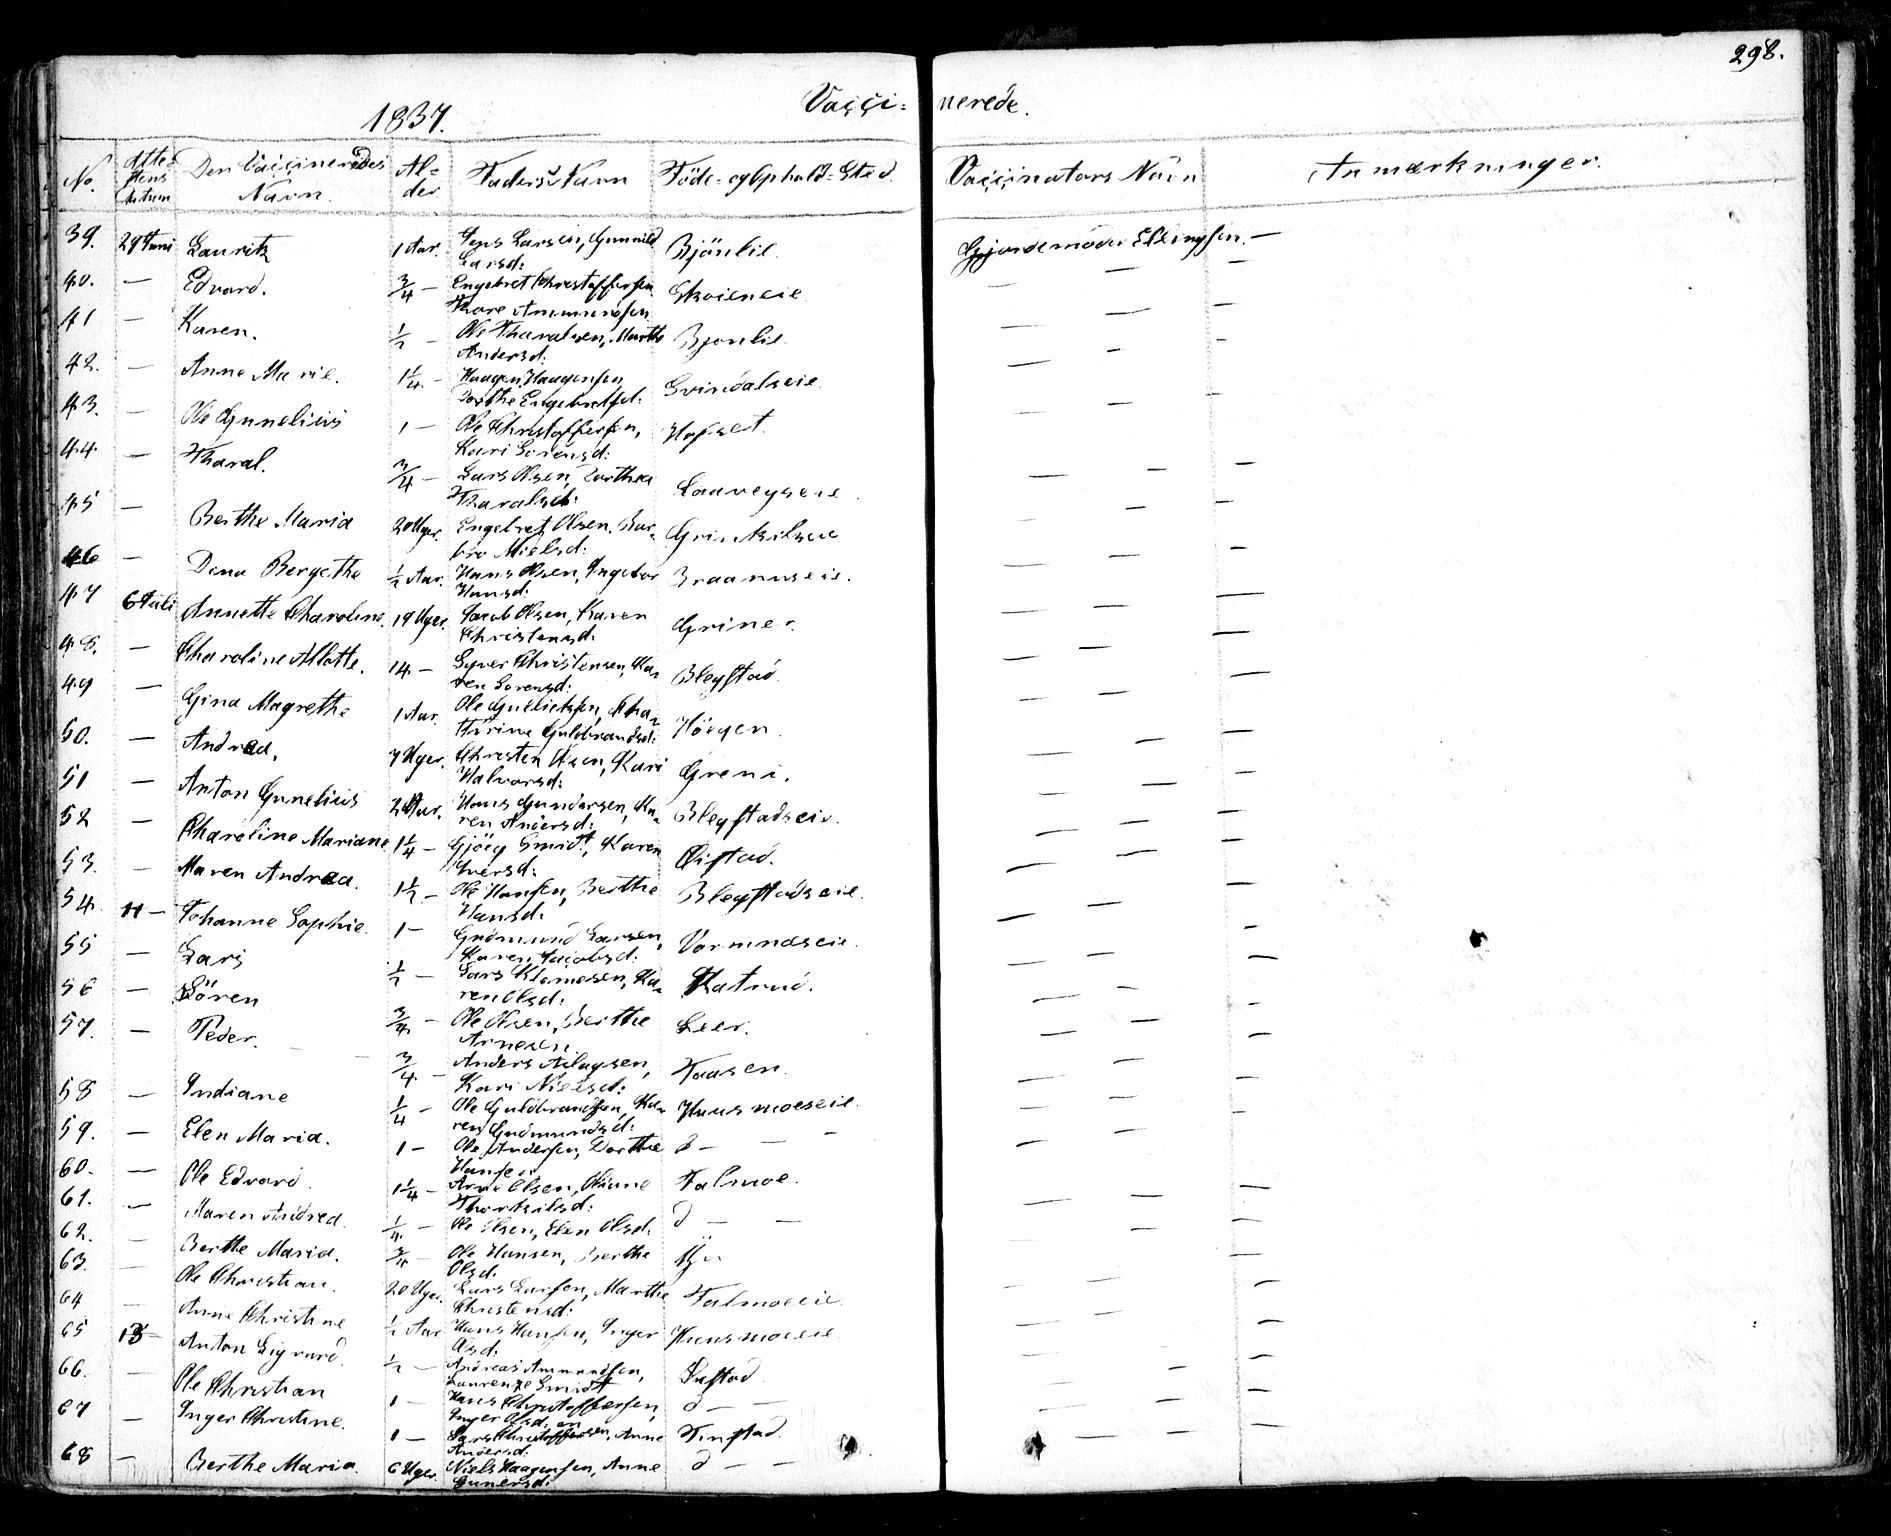 298.
Vaççi= nerede.
1837.
No. Atte= stens Datum Den Vaççineredes Navn. Al= der Faders Navn Föde= og Ophold=Sted. Vaççinators Navn Anmærkninger.
39. 29 Juni Lauritz 1 Aar. Jens Larsen, Gunnild Larsd: Bjönlie. Gjordemoder Ellingsen. —
40. — Edvard. 3/4 — Engebret Christoffersen Thore Amundsen Skoieneie — — —
41 — Karen. 1/2 — Ole Tharalsen, Marthe Andersd: Bjonlie. — — —
42. — Anne Marie. 1 1/4 — Haagen Haagensen Dorthe Engebretsd: Svindalseie — — —
43. — Ole Gunelius 1 — Ole Christoffersen, Kari Sorensd: Hofset. — — —
44. — Tharal. 3/4 — Lars Olsen, Dorthea Tharalsd: Laaveyseie — — —
45 — Berthe Maria 20 Uger. Engebret Olsen. Bar= bro Nielsd: Grinkilseie — — —
46 — Dina Bergethe 1/2 Aar. Hans Olsen, Ingebor Hansd: Braanaseie. — — —
47 6 Juli Annette Charoline. 19 Uger. Jacob Olsen, Karen Christensd. Griner. — — —
48. — Charoline Allotte. 14 — Syver Christensen, Ka= ren Sorensd: Blegstad. — — —
49 — Gina Magrethe 1 Aar. Ole Gullichsen, Cha= thrine Guldbrandsd: Höegen. — — —
50. — Andrea. 7 Uger. Christen Olsen, Kari Halvorsd: Greni. — — —
51 — Anton Gunelius 2 Aar. Hans Gundersen, Ka= ren Andersd: Blegstadseie. — — —
52 — Charoline Mariane 1 1/4 — Gjöeg Smidt, Karen Iversd: Öistad. — — —
53. — Maren Andrea. 1 1/2 — Ole Hansen, Berthe Hansd: Blegstadseie. — — —
54. 11 — Johanne Sophie. 1 — Gudmund Larsen, Karen Jacobsd: Vormnæseie. — — —
55 — Lars 1/2 — Lars Klemesen, Ka= ren Olsd: Katrud. — — —
56 — Sören 3/4 — Ole Olsen, Berthe Arnesen Leer. — — —
57. — Peder. — — 3/4 — Anders Aslagsen, Kari Nielsd: Haasen. — — —
58 — Indiane 1/4 — Ole Guldbrandsen, Ka= ren Gudmundsd: Huusmoeseie. — — —
59. — Elen Maria. 1 — Ole Andersen, Dorthe Hansen d — — — — — —
60. — Ole Edvard. 1 1/4 — Arne Olsen, Oliane Thorkilsd: Talmoe. — — —
61. — Maren Andrea. 1/4. — Ole Olsen, Elen Olsd. d — — — — —
62. — Berthe Maria. 3/4 — Ole Hansen, Berthe Olsd. — — —
63. — Ole Christian. 20 Uger. Lars Larsen, Marthe Christensd: Talmoeeie. — — —
64 — Anne Christine 1/2 Aar Hans Hansen, Inger Olsd. Huusmoeeie — — —
65 13 — Anton Sigvard 1/2 — Andreas Amundsen, Laurenze Smidt — — —
66. — Ole Christian 1 — Hans Christoffersen, Inger Olsd: d — — — — —
67 — Inger Christine. 1 — Lars Christoffersen, Anne Andersd. Finstad. — — —
68 — Berthe Maria. 6 Uger. Niels Haagensen, Anne Gunersd: d — — — — —